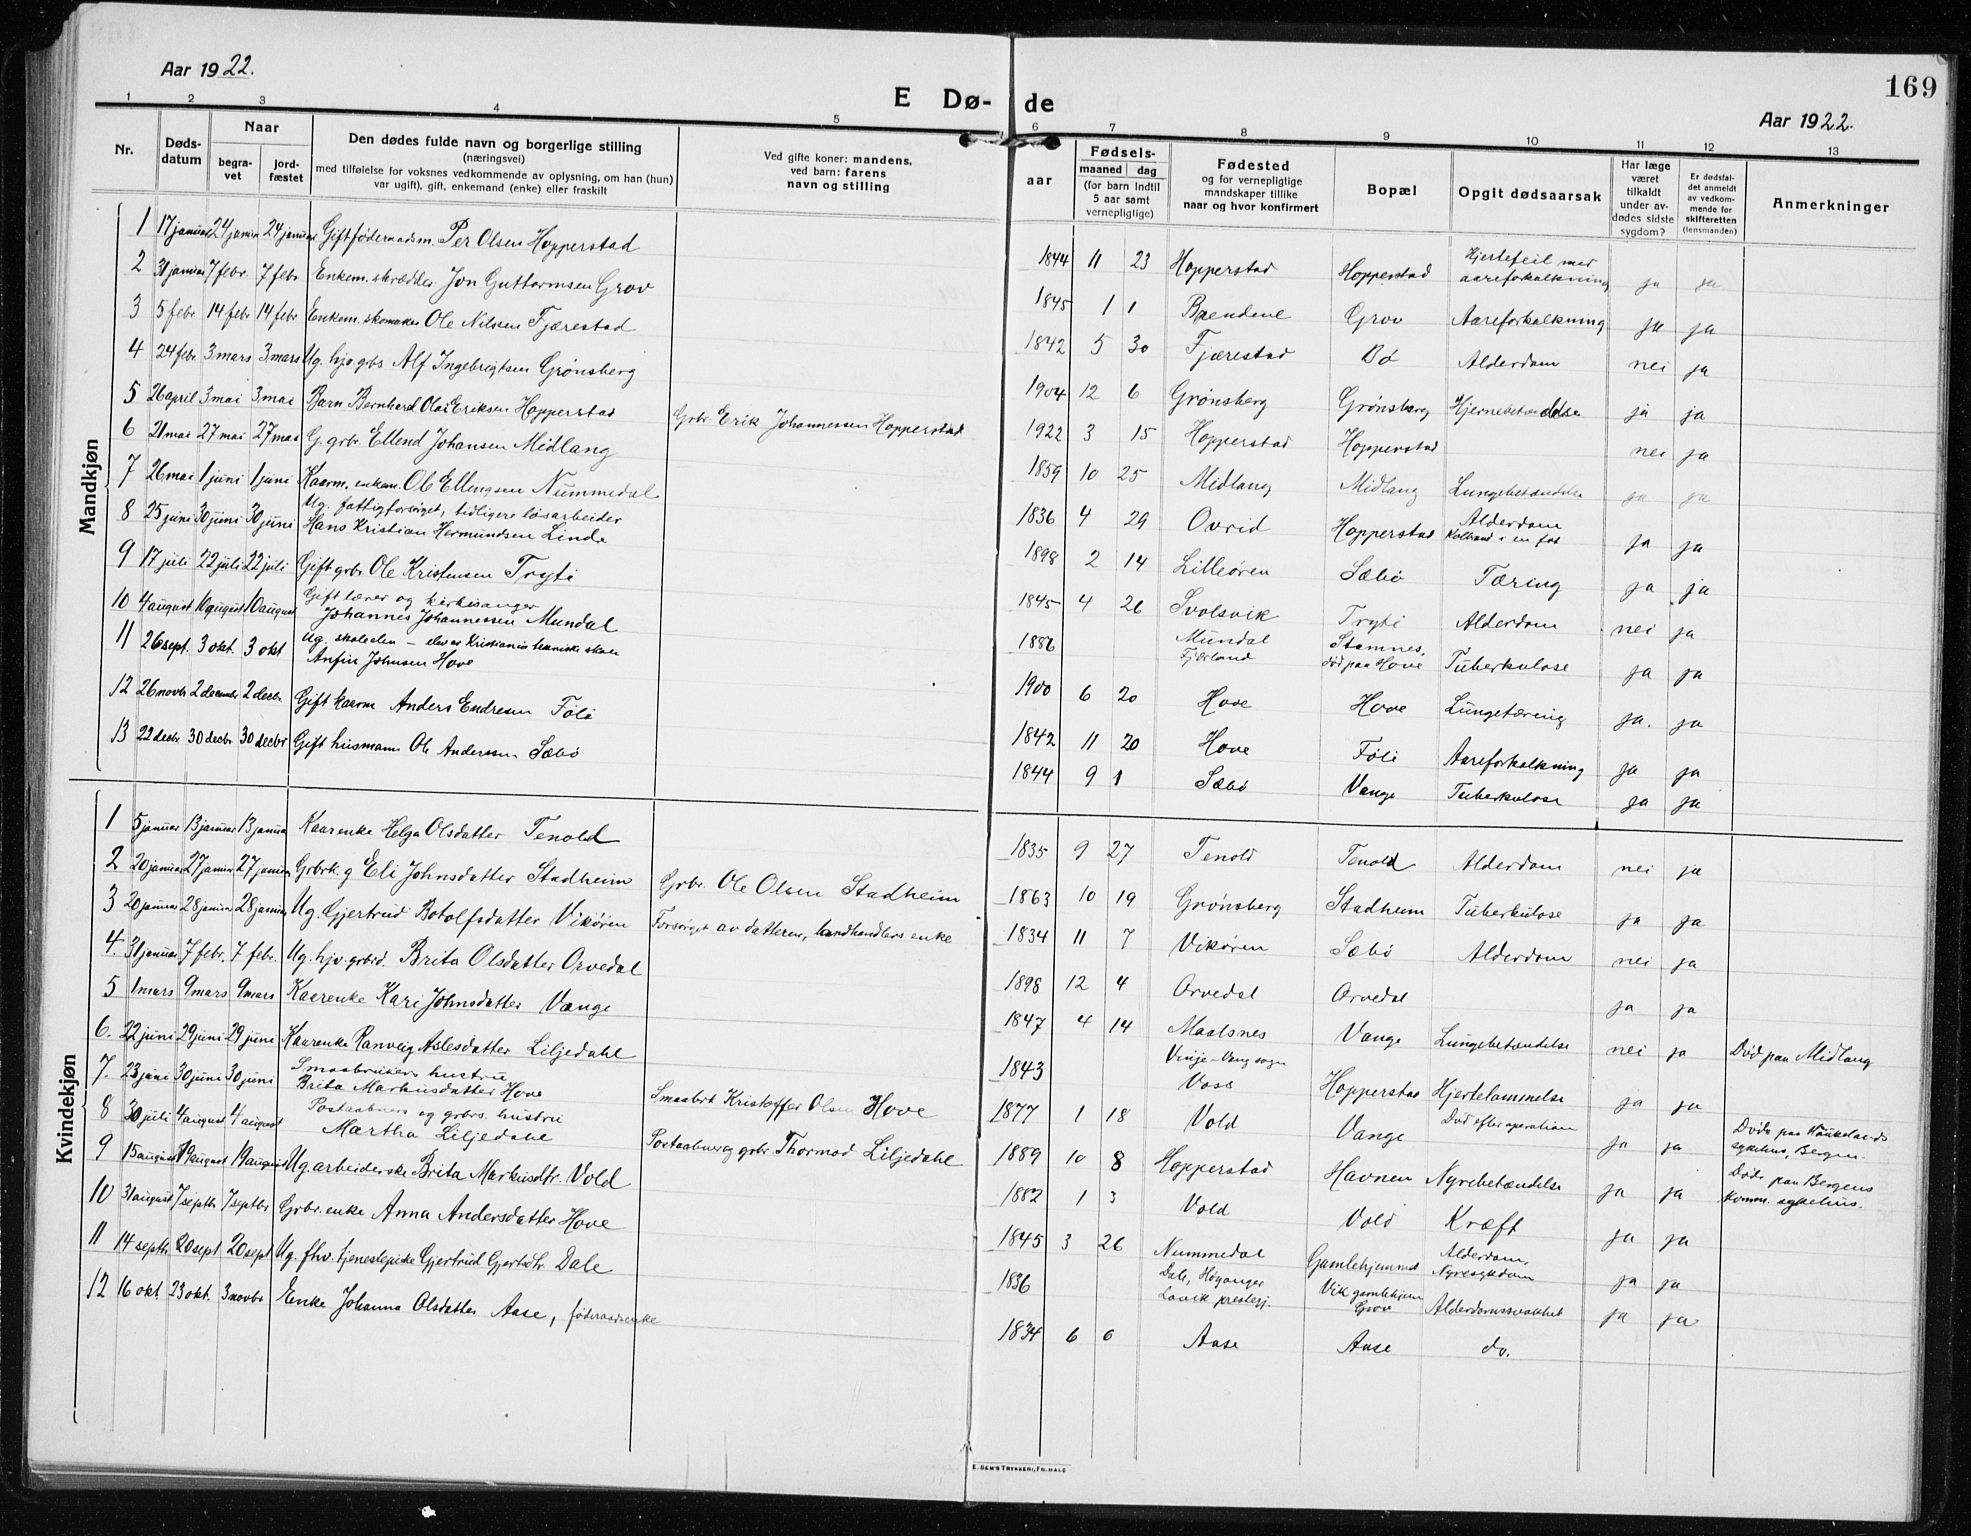 Aar 1922.
E Dø-
de
169
Aar 1922.
1 2 3 4 5 6 7 8 9 10 11 12 13
Nr.
Døds-
datum
Naar
begra-
vet
jord-
fæstet
Den dødes fulde navn og borgerlige stilling
(næringsvei)
med tilføielse for voksnes vedkommende av oplysning, om han (hun)
var ugift), gift, enkemand (enke) eller fraskilt
Ved gifte koner: mandens,
ved barn: farens
navn og stilling
aar
Fødsels-
maaned dag
(for barn indtil
5 aar samt
vernepligtige)
Fødested
og for vernepligtige
mandskaper tillike
naar og hvor konfirmert
Bopæl
Opgit dødsaarsak
Har læge
været
tilkaldt
under av-
dødes sidste
sygdom?
Er dødsfal-
det anmeldt
av vedkom-
mende for
skifteretten
(lensmanden)
Anmerkninger
Mandkjøn
1 17 januar 24 januar 24 januar Gift føderaadsm. Per Olsen Hopperstad 1844 11 23 Hopperstad Hopperstad Hjertefeil med
aareforkalkning ja ja
2 31 januar 7 febr. 7 febr Enkem. skrædder Jon Guttormsen Grov 1845 1 1 Brendene Grov Aareforkalkning ja ja
3 5 febr 14 febr 14 febr Enkem. skomaker Ole Nilssen Fjærestad 1842 5 30 Fjærestad Bø Alderdom nei ja
4 24 febr 3 mars 3 mars Ug. hjv. grbs Alf Ingebrigtsen Grønsberg 1904 12 6 Grønsberg Grønsberg Hjernebetændelse ja ja
5 26 april 3 mai 3 mai Barn Bernhard Olai Eriksen Hopperstad Grbr Erik Johannessen Hopperstad 1922 3 15 Hopperstad Hopperstad nei ja
6 21 mai 27 mai 27 mai G. grbr. Ellend Johansen Midlang 1859 10 25 Midlang Midlang Lungebetændelse ja ja
7 26 mai 1 juni 1 juni Kaarm. enkem. Ole Ellingsen Nummedal 1836 4 29 Ovrid Hopperstad Alderdom
Kolbrand i en fot ja ja
8 25 juni 30 juni 30 juni Ug. fattigforsørget, tidligere løsarbeider
Hans Kristian Hermundsen Linde 1898 2 14 Lilleøren Sæbø Tæring ja ja
9 17 juli 22 juli 22 juli Gift grbr Ole Kristensen Tryti 1845 4 26 Svolsvik Tryti Alderdom nei ja
10 4 august 10 august 10 august Gift lærer og kirkesanger
Johannes Johannessen Mundal 1886 Mundal
Fjærland Stamnes,
død paa Hove Tuberkulose ja ja
11 26 sept. 3 okt. 3 okt Ug. skoleelev – elev av Kristiania tekniske skole
Anfin Johnsen Hove 1900 6 20 Hove Hove Lungetæring ja. ja
12 26 novbr 2 decembr 2 decbr Gift kaarm Anders Endresen Føli 1842 11 20 Hove Føli Aareforkalkning ja ja
13 22 decbr 30 decbr 30 decbr Gift husmann Ole Anderssen Sæbø 1844 9 1 Sæbø Vange Tuberkulose ja ja
Kvindekjøn
1 5 januar 13 januar 13 januar Kaarenke Helga Olsdatter Tenold 1835 9 27 Tenold Tenold Alderdom nei ja
2 20 januar 27 januar 27 januar Grbrk. g Eli Johnsdatter Stadheim Grbr. Ole Olsen Stadheim 1863 10 19 Grønsberg Stadheim Tuberkulose ja ja
3 20 januar 28 januar 28 januar Ug. Gjertrud Botolfsdatter Vikøren Forsørget av datteren, landhandlers enke 1834 11 7 Vikøren Sæbø Alderdom nei ja
4. 31 januar 7 febr. 7 febr. Ug. hjv. grbrd. Brita Olsdatter Orvedal 1898 12 4 Orvedal Orvedal ja ja
5 1 mars 9 mars 9 mars Kaarenke Kari Johnsdatter Vange 1847 4 14 Maalsnes Vange Lungebetændelse nei ja Død paa Midlang
6. 22 juni 29 juni 29 juni Kaarenke Ranveig Aslesdatter Liljedahl 1843 Vinje-Vang sogn
Voss Hopperstad Hjertelammelse ja ja
7. 23 juni 30 juni 30 juni Smaabrukers hustru
Brita Markusdatter Hove Smaabrk Kristoffer Olsen Hove 1877 1 18 Vold Vange Død efter operation ja ja Døde paa Haukelands
sykehus, Bergen.
8 30 juli 4 august 4 august Postaabners og grbrs. hustru
Martha Liljedahl Postaabner og grbr. Thormod Liljedahl 1889 10 8 Hopperstad Havnen Nyrebetændelse ja ja Døde paa Bergens
komm. sykehus.
9 15 august 19 august 19 august Ug. arbeiderske Brita Markusdtr. Vold 1882 1 3 Vold Vold Kræft ja ja
10 31 august 7 septbr 7 septbr Grbr. enke Anna Andersdatter Hove 1845 3 26 Nummedal Gamlehjemmet Alderdom,
Nyresykdom ja ja
11 14 septbr 20 sept 20 sept Ug. fhv. tjenestepike Gjertrud Gjertsdtr. Dale 1836 Dale, Høyanger
Lavik prestegj. Vik gamlehjem
Grov Alderdomssvakhet ja ja
12 16 okt. 23 okt. 3 novbr Enke Johanna Olsdatter Aase, føderaadsenke 1834 6 6 Aase Aase do.
E. SEM'S TRYKKERI, FR.HALD